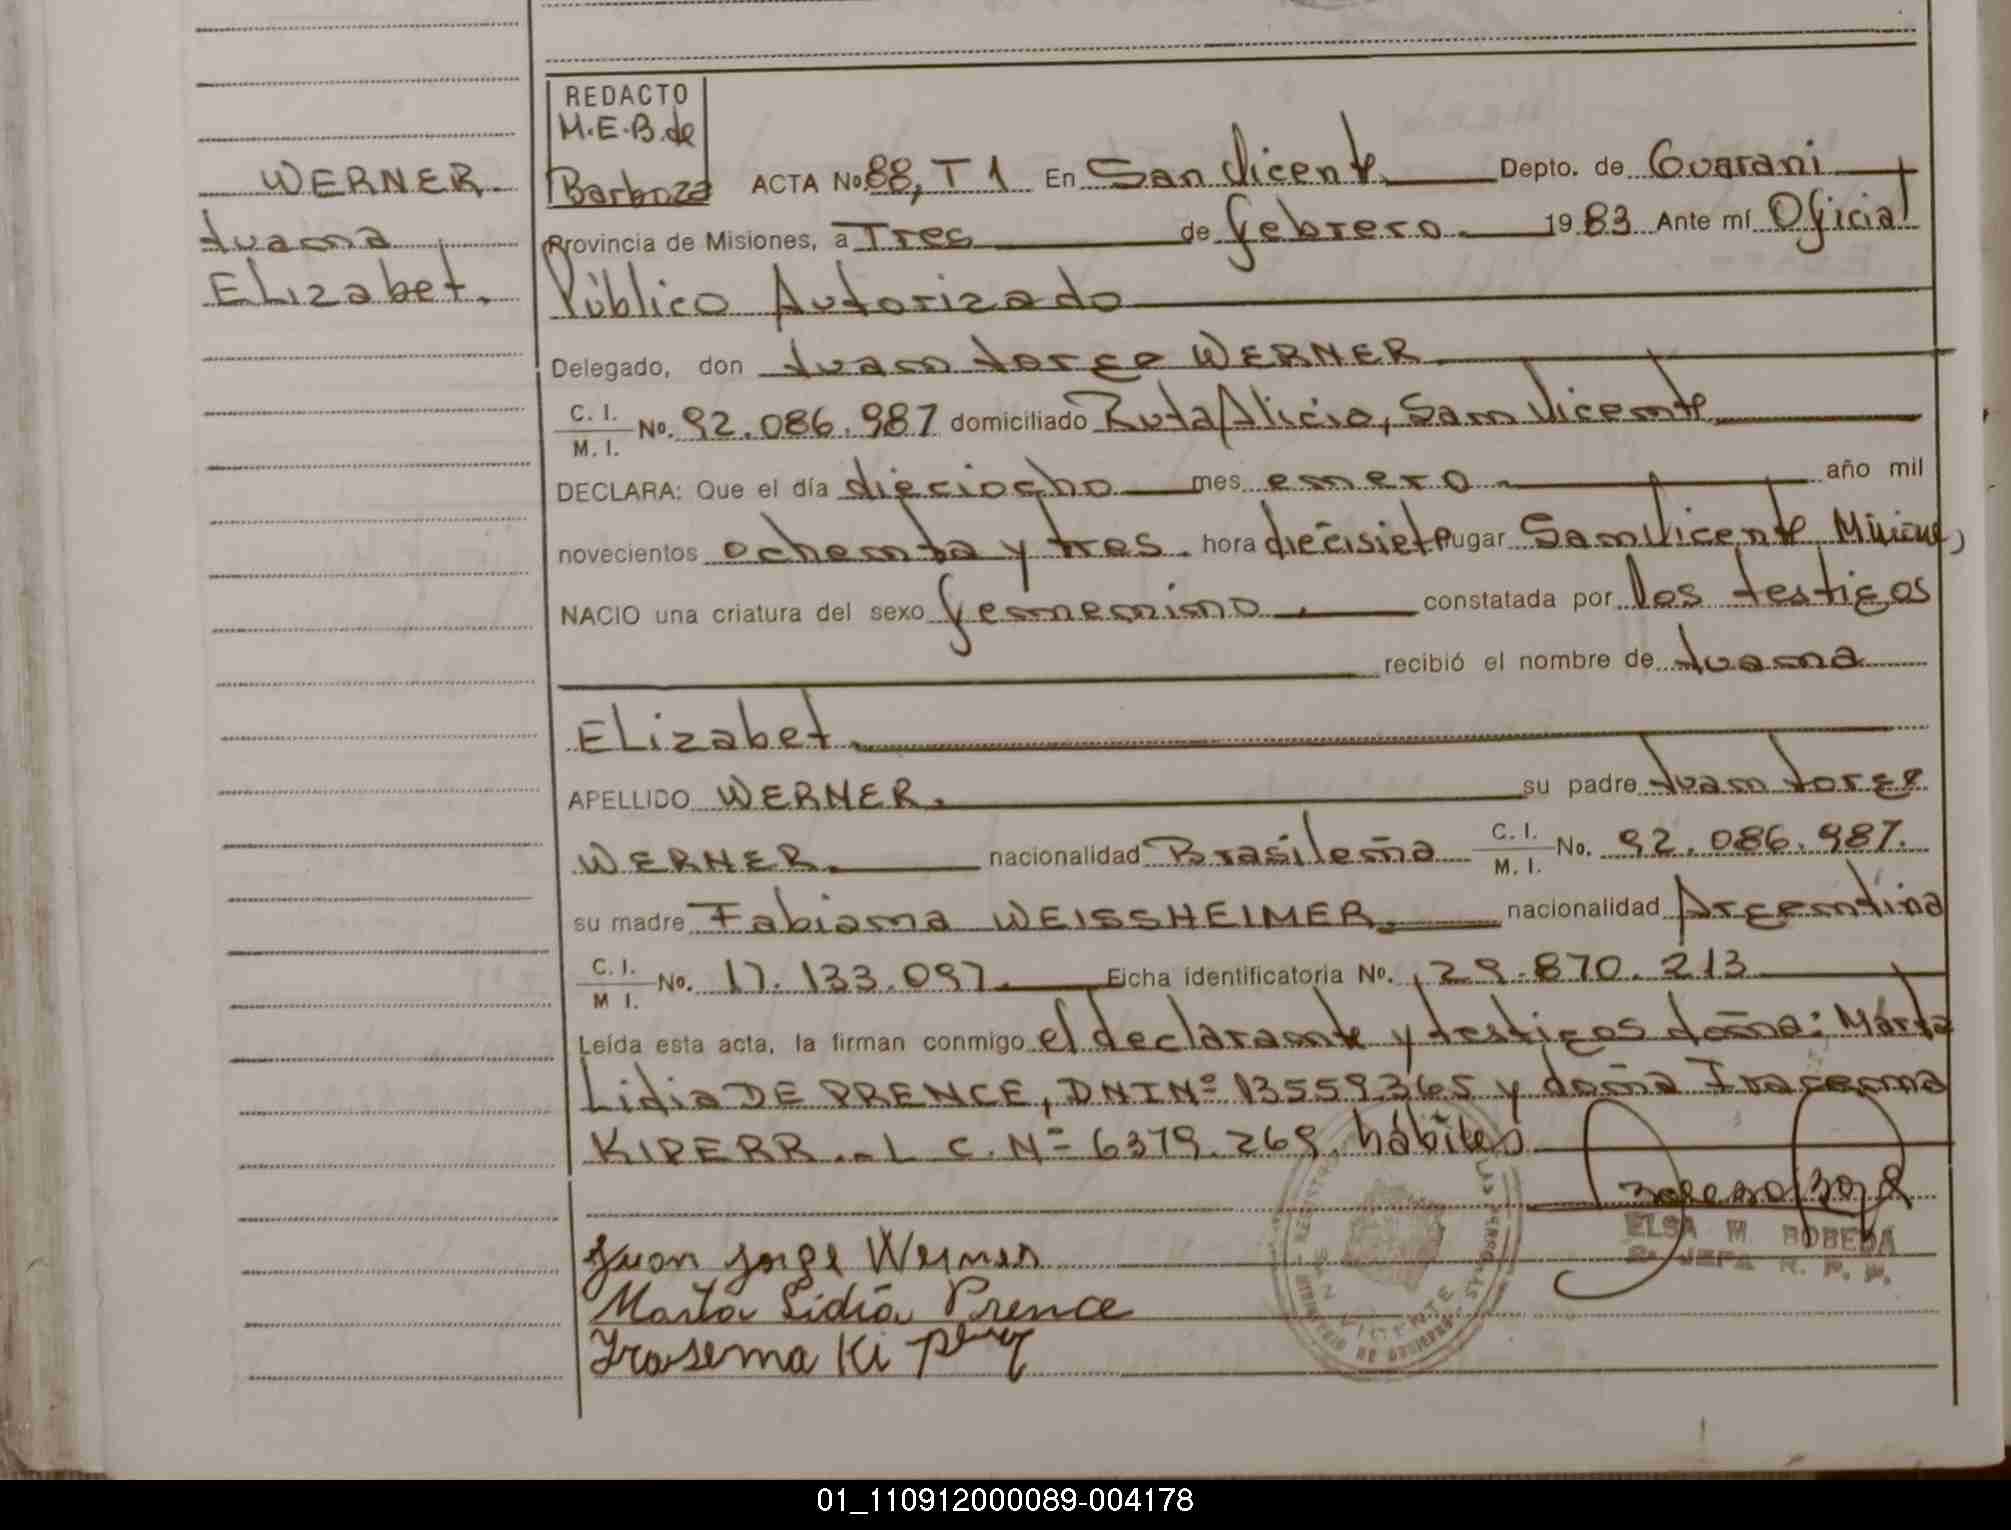 WERNER
Juana
ELizabet.
REDACTO
M.E.B. de
Barboza
ACTA No 88, T 1 En San Vicente Depto. de Guarani
Provincia de Misiones, a Tres de febrero 1983 Ante mí Oficial
Público Autorizado
Delegado, don Juan Jorge WERNER
C. I.
M. I. No. 92.086.987 domiciliado Ruta Alicia, San Vicente
DECLARA: Que el día dieciocho mes enero año mil
novecientos ochenta y tres. hora diecisiete lugar San Vicente,
NACIO una criatura del sexo femenino constatada por los testigos
recibió el nombre de Juana
ELizabet.
APELLIDO WERNER. su padre Juan Jorge
WERNER. nacionalidad Brasileña C. I.
M. I. No. 92.086.987.
su madre Fabiana WEISSHEIMER. nacionalidad Argentina
C. I.
M I. No. 17.133.097. Ficha identificatoria No. 29.870.213
Leída esta acta, la firman conmigo el declarante y testigos doña: Márta
Lidia DE PRENCE, DNI Nº 13559365 y doña Iracema
KIPERR.-L C. Nº 6379.269. hábiles
Juan Jorge Werner
Marta Lidia Prence
Irasema Ki
ELSA M. BOBEDA
2ª JEFA R. P. P.
SAN VICENTE
01_110912000089-004178